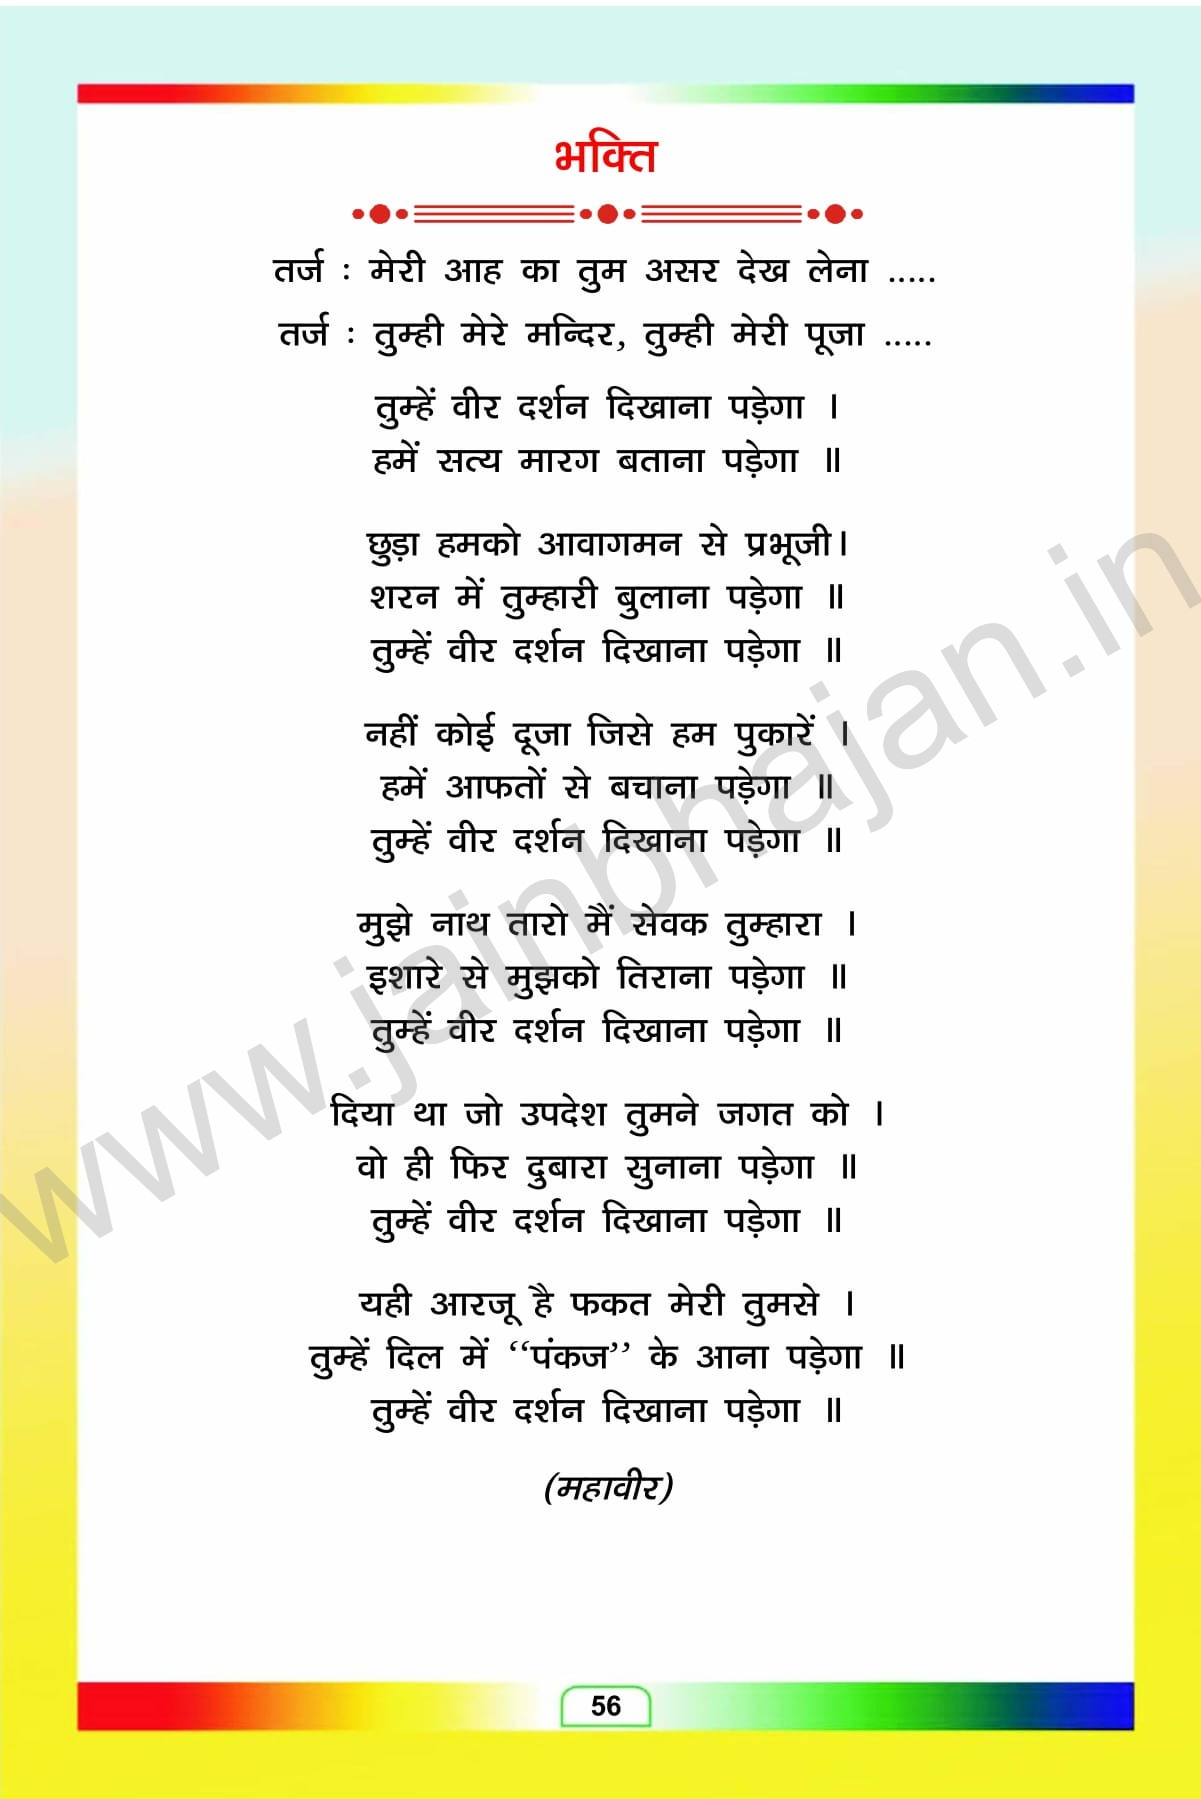 भक्ति
तर्ज : मेरी आह का तुम असर देख लेना .....
तर्ज : तुम्ही मेरे मन्दिर, तुम्ही मेरी पूजा .....
तुम्हें वीर दर्शन दिखाना पड़ेगा ।
हमें सत्य मारग बताना पड़ेगा ॥
छुड़ा हमको आवागमन से प्रभूजी।
शरन में तुम्हारी बुलाना पड़ेगा ॥
तुम्हें वीर दर्शन दिखाना पड़ेगा ॥
नहीं कोई दूजा जिसे हम पुकारें ।
हमें आफतों से बचाना पड़ेगा ॥
तुम्हें वीर दर्शन दिखाना पड़ेगा ॥
मुझे नाथ तारो मैं सेवक तुम्हारा ।
इशारे से मुझको तिराना पड़ेगा ॥
तुम्हें वीर दर्शन दिखाना पड़ेगा ॥
दिया था जो उपदेश तुमने जगत को ।
वो ही फिर दुबारा सुनाना पड़ेगा ॥
तुम्हें वीर दर्शन दिखाना पड़ेगा ॥
यही आरजू है फकत मेरी तुमसे ।
तुम्हें दिल में ‘‘पंकज’’ के आना पड़ेगा ॥
तुम्हें वीर दर्शन दिखाना पड़ेगा ॥
(महावीर)
56
www.jainbhajan.in